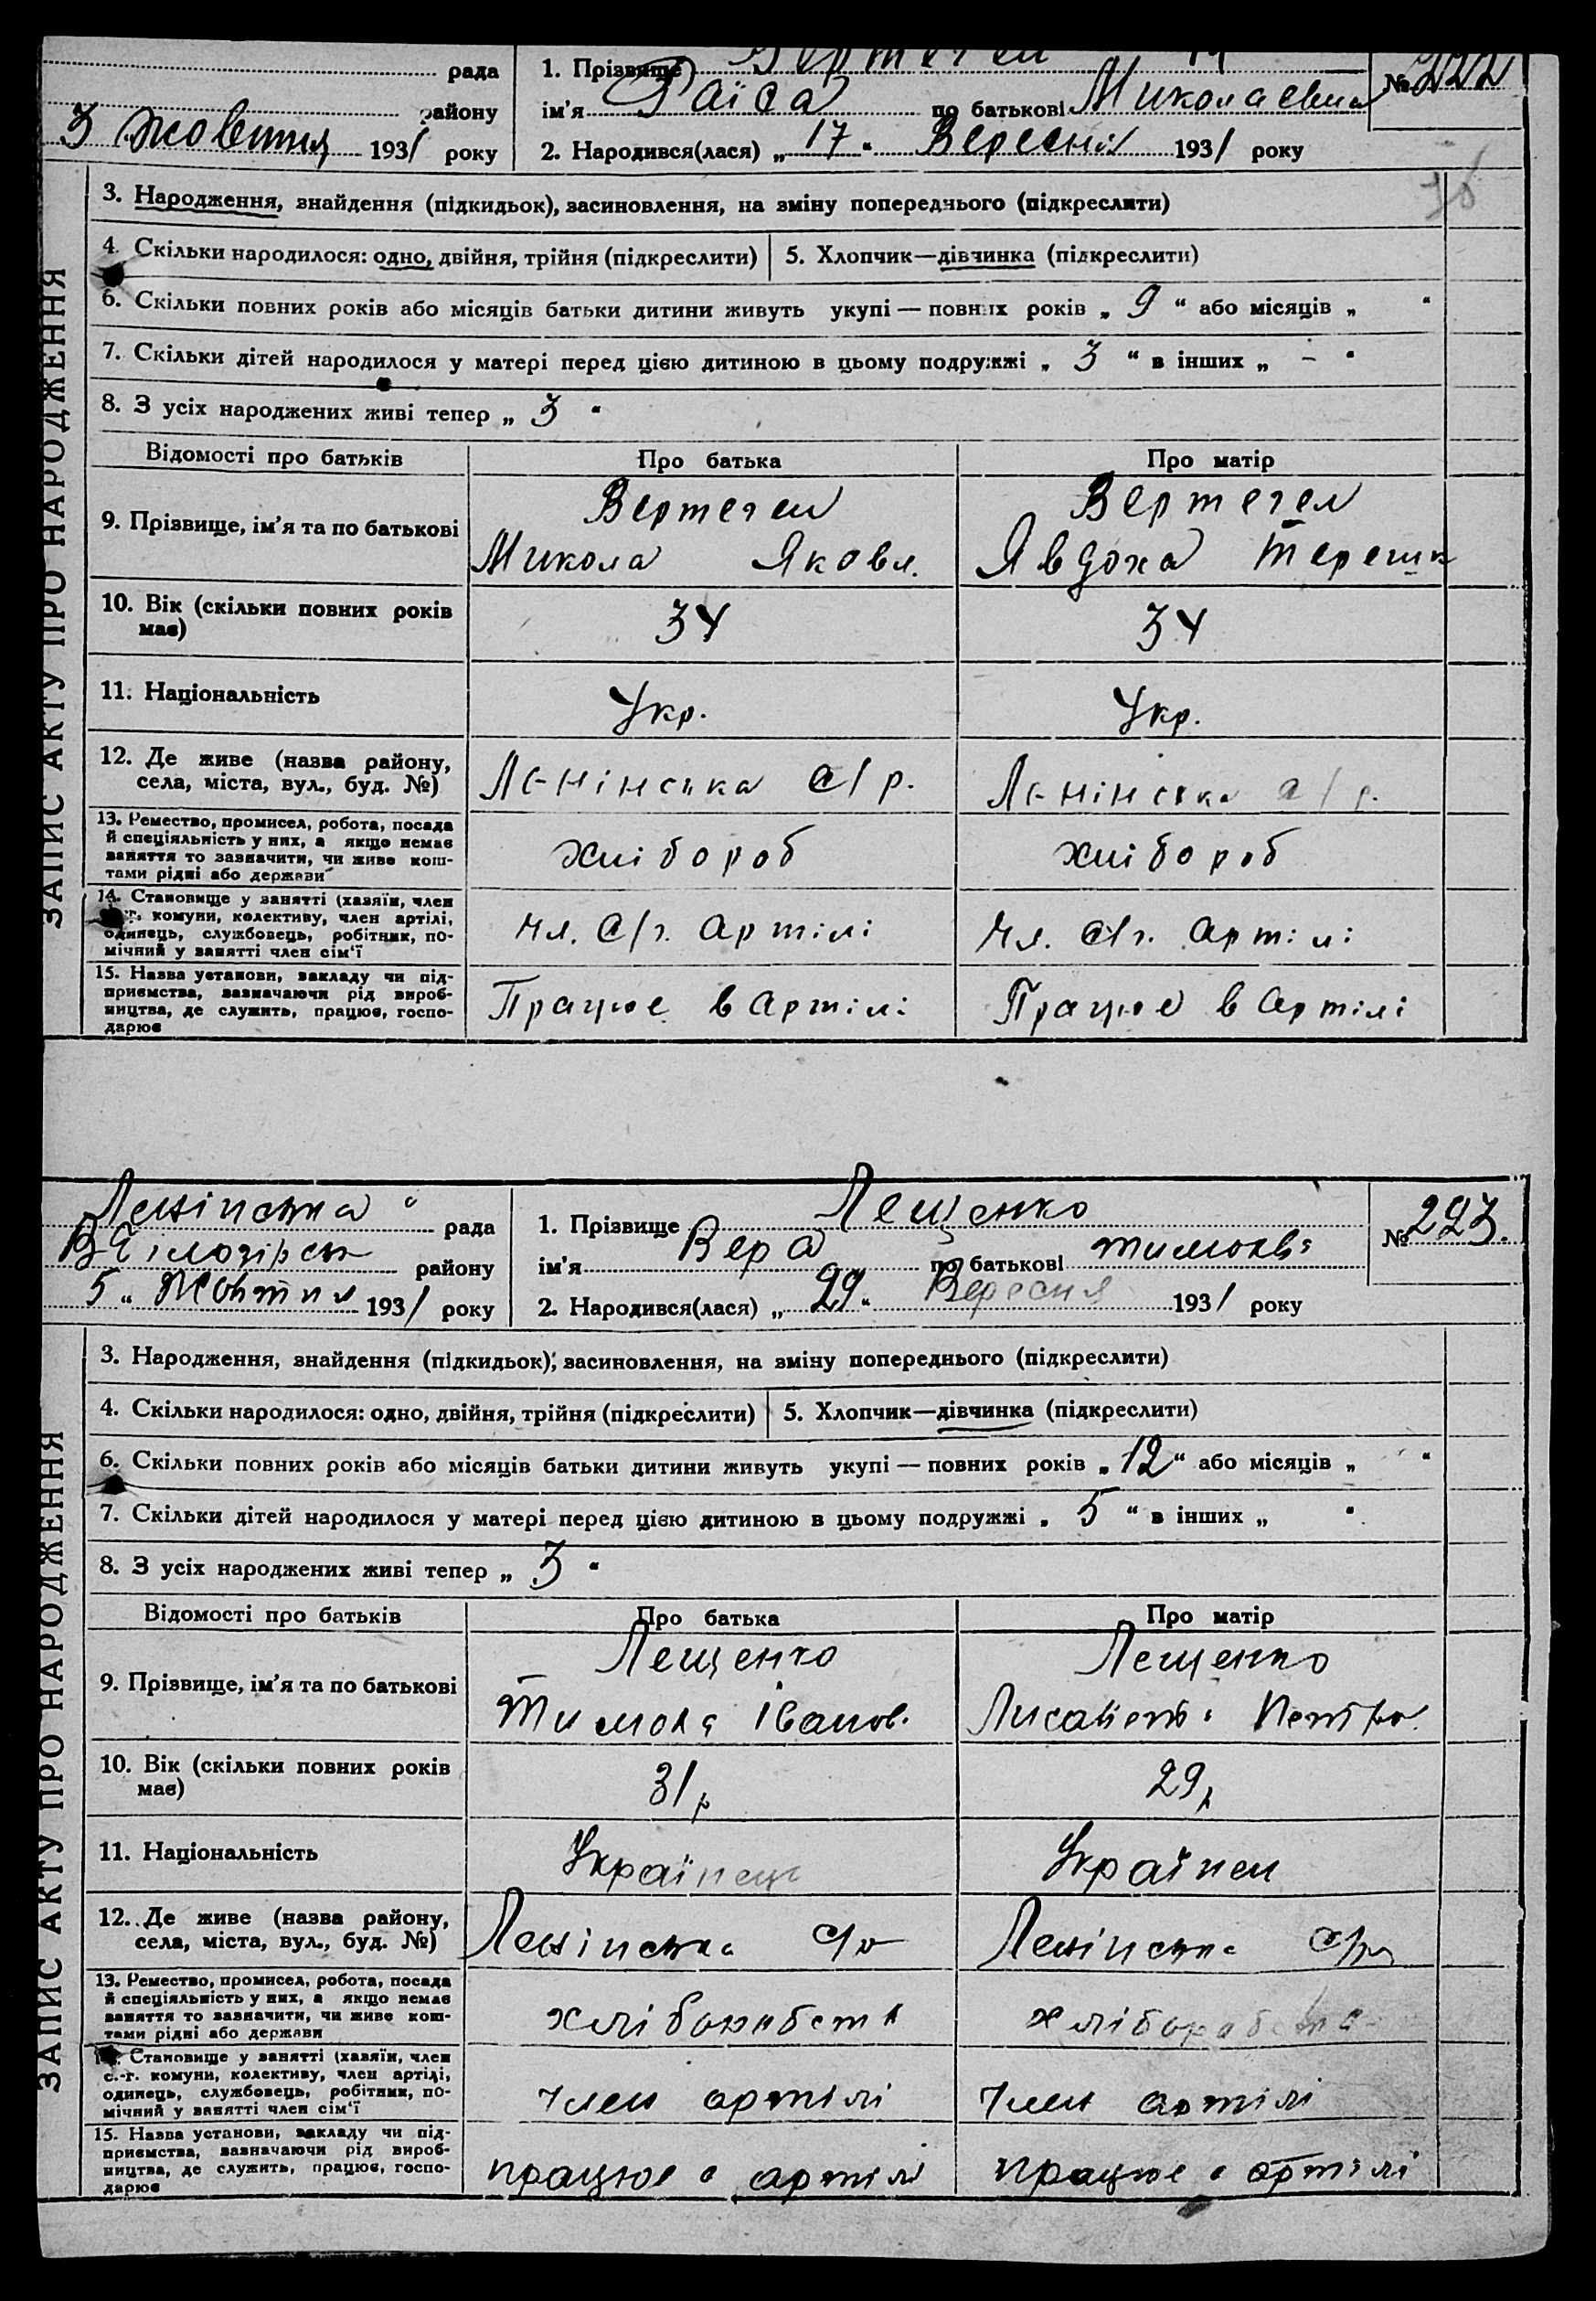 рада
району
3 Жовтня 1931 року
1. Прізвище Вертегел
ім'я Раїса по батькові Миколаевна
№ 222
2. Народився(лася) „ 17 " Вересня 1931 року
ЗАПИС АКТУ ПРО НАРОДЖЕННЯ
3. Народження, знайдення (підкидьок), засиновлення, на зміну попереднього (підкреслити)
4. Скільки народилося: одно, двійня, трійня (підкреслити)
5. Хлопчик—дівчинка (підкреслити)
6. Скільки повних років або місяців батьки дитини живуть укупі — повних років „ 9 " або місяців „ "
7. Скільки дітей народилося у матері перед цією дитиною в цьому подружжі „ 3 " в інших „ - "
8. З усіх народжених живі тепер „ 3 "
Відомості про батьків
Про батька
Про матір
9. Прізвище, ім'я та по батькові
Вертегел
Микола Яковл.
Вертегел
Явдоха Терешк
10. Вік (скільки повних років
має)
34
34
11. Національність
Укр.
Укр.
12. Де живе (назва району,
села, міста, вул., буд. №)
Ленінська с/р.
Ленінська с/р.
13. Ремество, промисел, робота, посада
й спеціяльність у них, а якщо немає
заняття то зазначити, чи живе кош-
тами рідні або держави
хлібороб
хлібороб
14. Становище у занятті (хазяїн, член
с.-г. комуни, колективу, член артілі,
одинець, службовець, робітник, по-
мічний у занятті член сім'ї
чл. с/г. артілі
чл. с/г. артілі
15. Назва установи, закладу чи під-
приємства, зазначаючи рід вироб-
ництва, де служить, працює, госпо-
дарює
Працює в артілі
Працює в артілі
Ленінська рада
В Білозірськ району
5 „ Жовтня 1931 року
1. Прізвище Лещенко
ім'я Вера по батькові Тимохв
№ 223.
2. Народився(лася) „ 29 " Вересня 1931 року
ЗАПИС АКТУ ПРО НАРОДЖЕННЯ
3. Народження, знайдення (підкидьок), засиновлення, на зміну попереднього (підкреслити)
4. Скільки народилося: одно, двійня, трійня (підкреслити)
5. Хлопчик—дівчинка (підкреслити)
6. Скільки повних років або місяців батьки дитини живуть укупі — повних років „ 12 " або місяців „ "
7. Скільки дітей народилося у матері перед цією дитиною в цьому подружжі „ 5 " в інших „ "
8. З усіх народжених живі тепер „ 3 "
Відомості про батьків
Про батька
Про матір
9. Прізвище, ім'я та по батькові
Лещенко
Тимоха Іванов.
Лещенко
Лисавета Петро.
10. Вік (скільки повних років
має)
31 р
29 р
11. Національність
Українец
Українец
12. Де живе (назва району,
села, міста, вул., буд. №)
Ленінська с/р
Ленінська с/р
13. Ремество, промисел, робота, посада
й спеціяльність у них, а якщо немає
заняття то зазначити, чи живе кош-
тами рідні або держави
хліборобств
хліборобства
14. Становище у занятті (хазяїн, член
с.-г. комуни, колективу, член артілі,
одинець, службовець, робітник, по-
мічний у занятті член сім'ї
член артілі
член артілі
15. Назва установи, закладу чи під-
приємства, зазначаючи рід вироб-
ництва, де служить, працює, госпо-
дарює
працює в артілі
працює в артілі